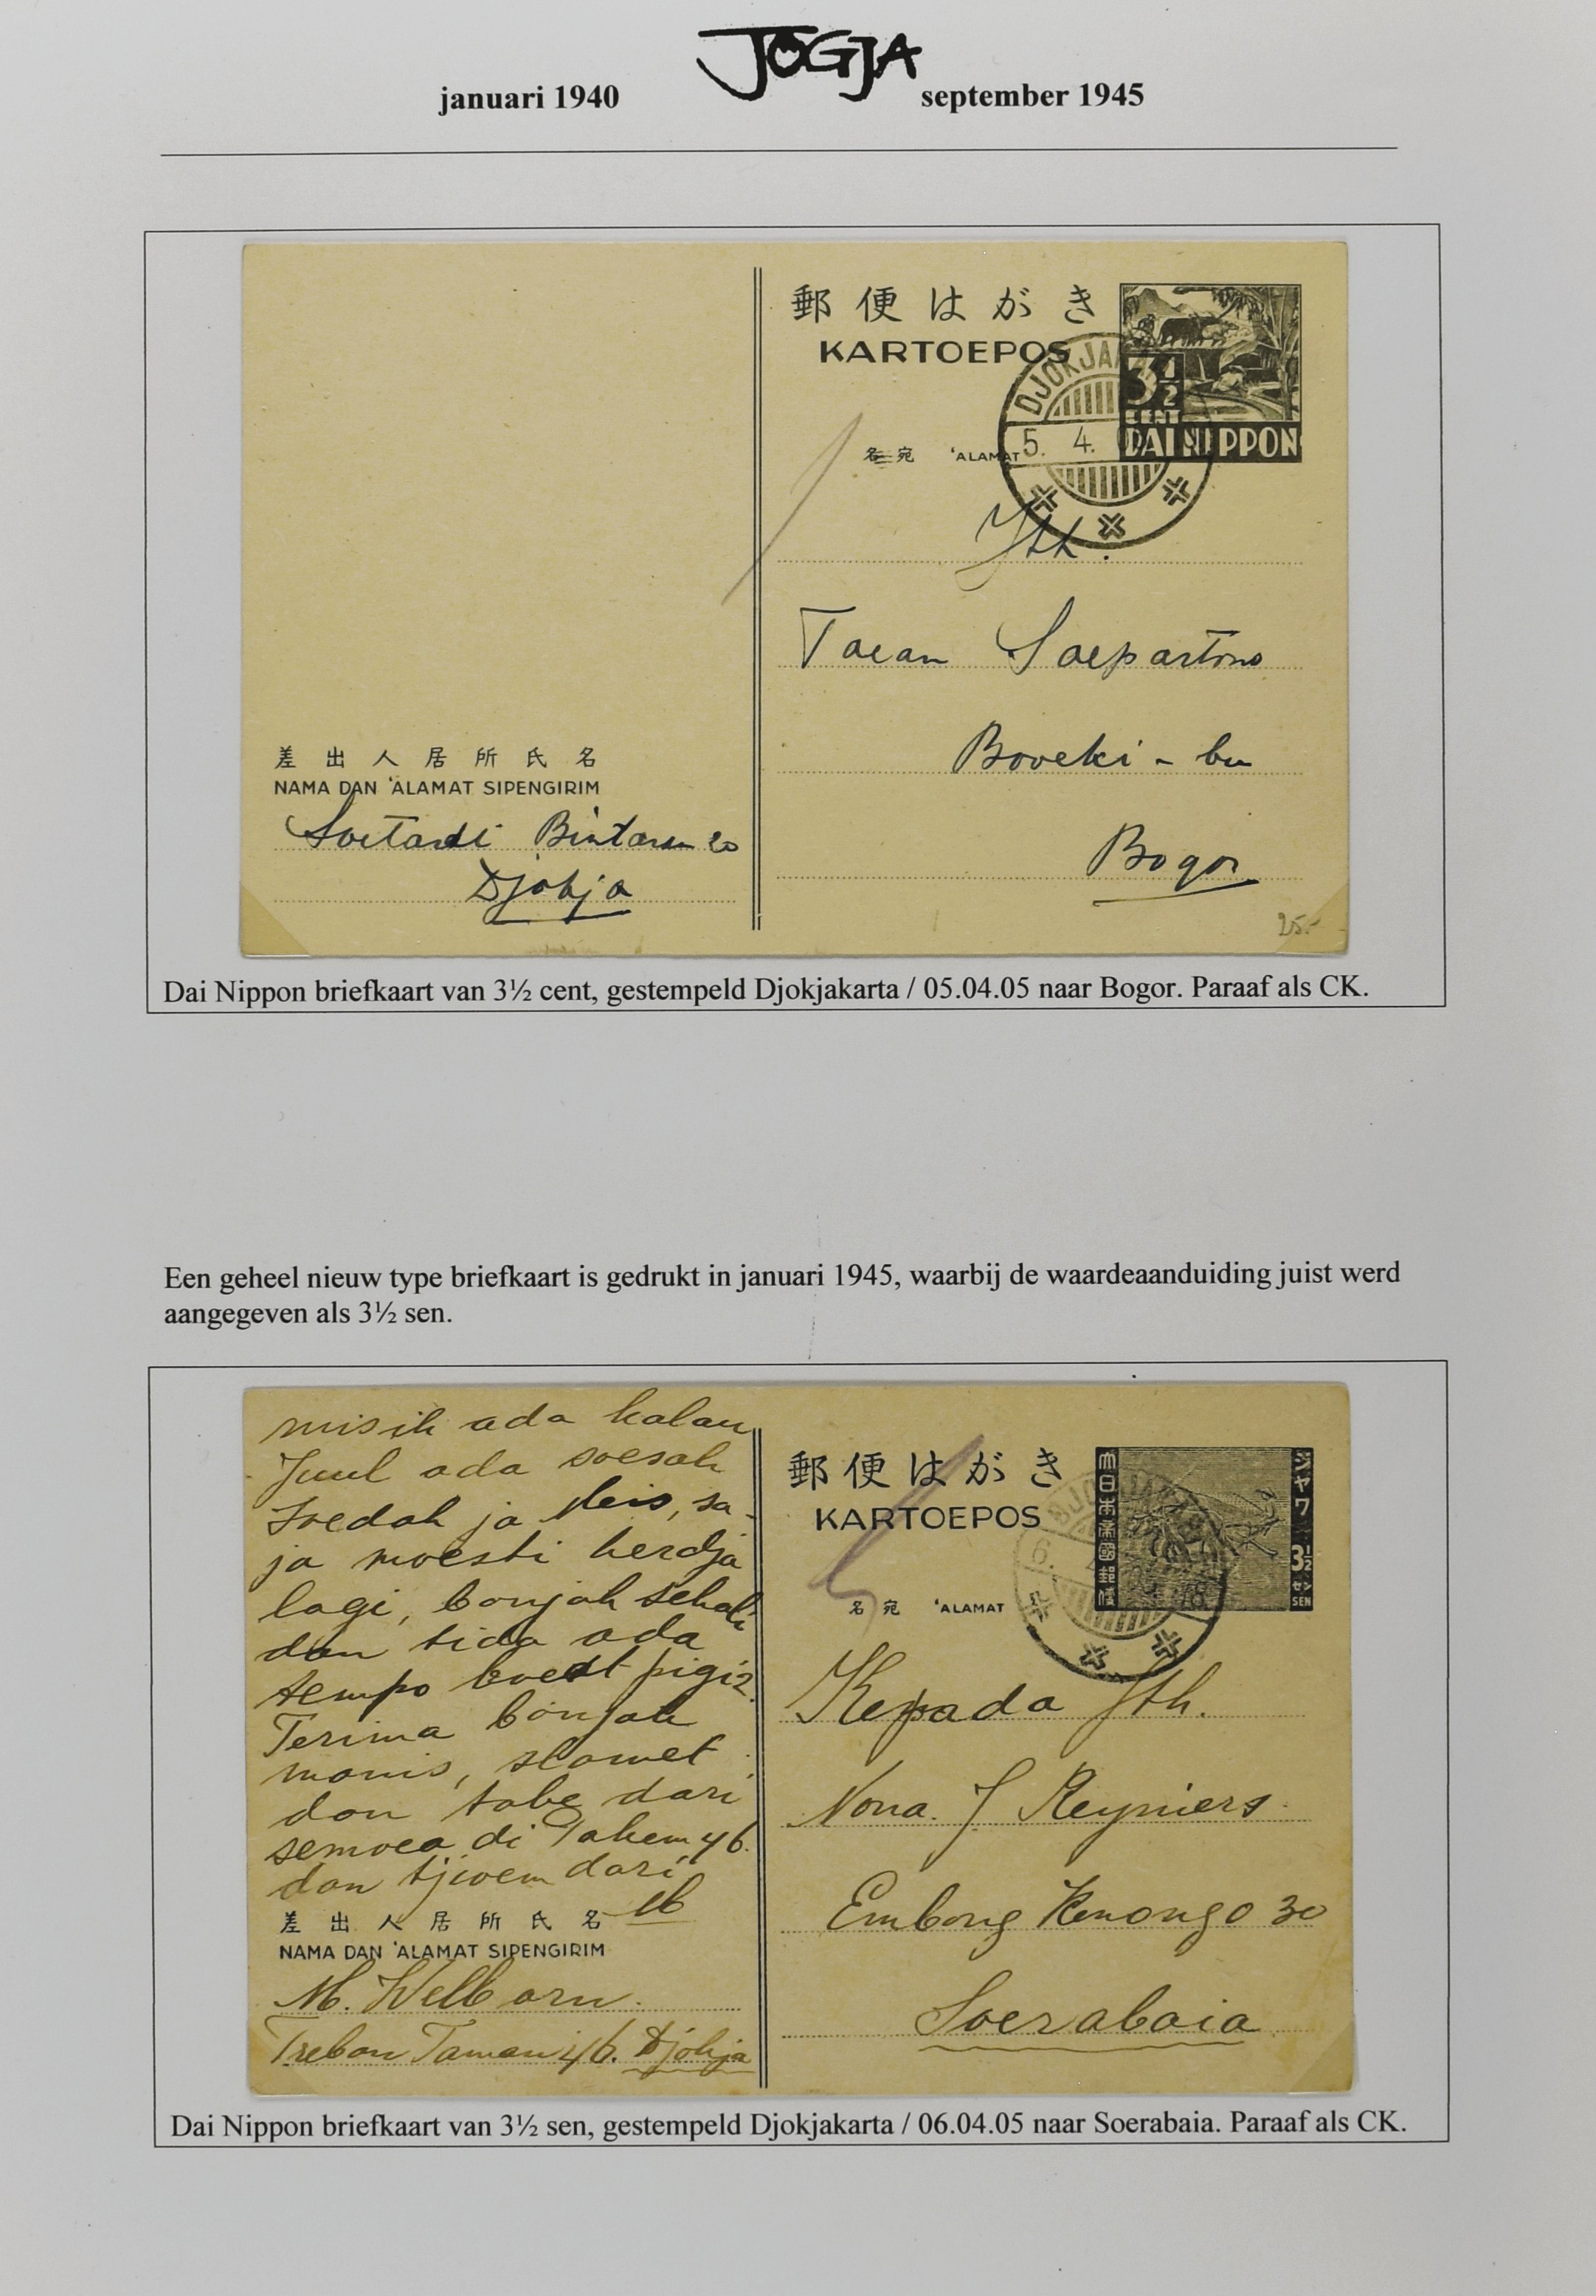 JOGJA
januari 1940 september 1945
郵便はがき
KARTOEPOS
3½
CENT
DAI NIPPON
DJOKJAKA
5. 4.
名宛 'ALAMAT
Jth.
Toean Soepartono
Boveki - bu
Bogor
25.-
差出人居所氏名
NAMA DAN 'ALAMAT SIPENGIRIM
Soetardi Bintaran 20
Djokja
Dai Nippon briefkaart van 3½ cent, gestempeld Djokjakarta / 05.04.05 naar Bogor. Paraaf als CK.
Een geheel nieuw type briefkaart is gedrukt in januari 1945, waarbij de waardeaanduiding juist werd
aangegeven als 3½ sen.
misih ada kalau
Juul ada soesah
soedah ja Meis, sa-
ja moesti kerdja
lagi, banjak sekali
dan tida ada
tempo boeat pigi2.
Terima banjak
manis, slamet
dan tabe dari
semoea di Taken 46.
dan tjioem dari
差出人居所氏名
NAMA DAN 'ALAMAT SIPENGIRIM
M. Welborn.
Treban Taman 46. Djokja
郵便はがき
KARTOEPOS
大日本帝國郵便
ジャワ
3½
セン
SEN
6.
名宛 'ALAMAT
Kepada Jth.
Nona. J. Reyniers.
Embong Kenongo 30
Soerabaia
Dai Nippon briefkaart van 3½ sen, gestempeld Djokjakarta / 06.04.05 naar Soerabaia. Paraaf als CK.